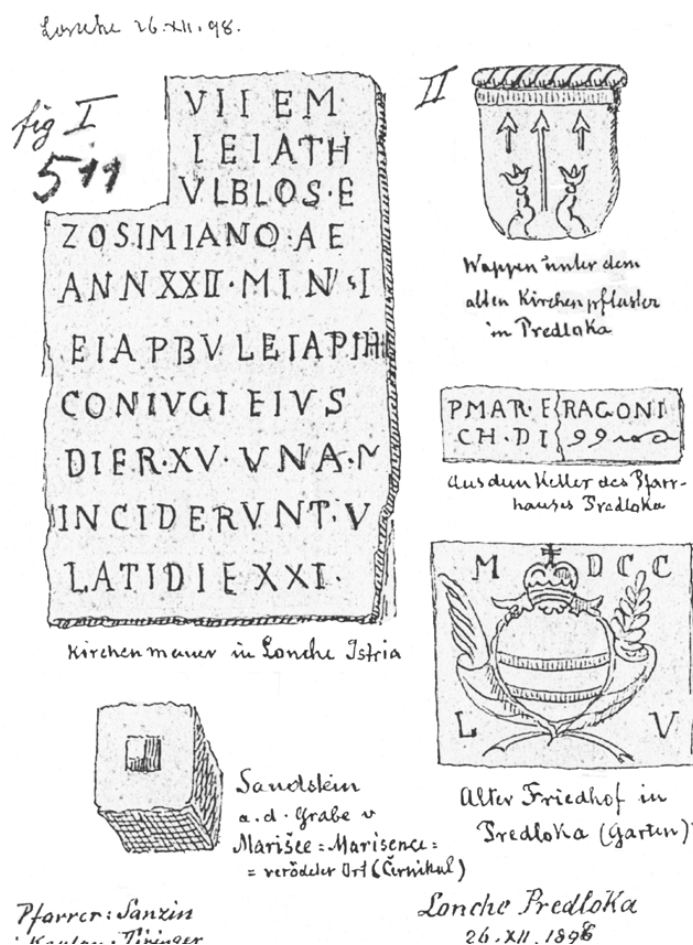 Lonche 26.XII.98.
fig I
511
VII EM
IEIATH
VLBLOS·E
ZOSIMIANO·AE
ANNXXII·MIN·I
EIAPBVLEIAPIH
CONIVGI EIVS
DIER·XV·VNA·M
INCIDERVNT·V
LATIDIEXXI·
Kirchenmauer in Lonche Istria
II
Wappen unter dem
alten Kirchenpflaster
in Predloka
PMAR·E RAGONI
CH·DI
Aus dem Keller des Pfarr-
hauses Predloka
M DCC
L V
Alter Friedhof in
Predloka (Garten)
Sandstein
a.d. Grabe v
Marišče = Marisence =
= verödeter Ort (Černikal)
Pfarrer: Sanzin
Lonche Predloka
26.XII.1898